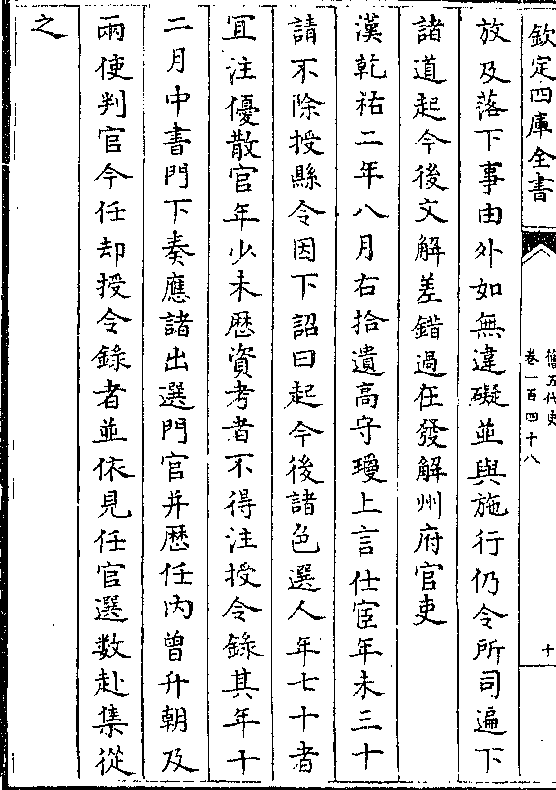 欽定四庫全書
舊五代史
卷一百四十八
十
放及落下事由外如無違礙並與施行仍令所司遍下
諸道起今後文解差錯過在發解州府官吏
漢乾祐二年八月右拾遺高守瓊上言仕宦年未三十
請不除授縣令因下詔曰起今後諸色選人年七十者
宜注優散官年少未歷資考者不得注授令錄其年十
二月中書門下奏應諸出選門官并歷任內曾升朝及
兩使判官今任却授令錄者並依見任官選數赴集從
之